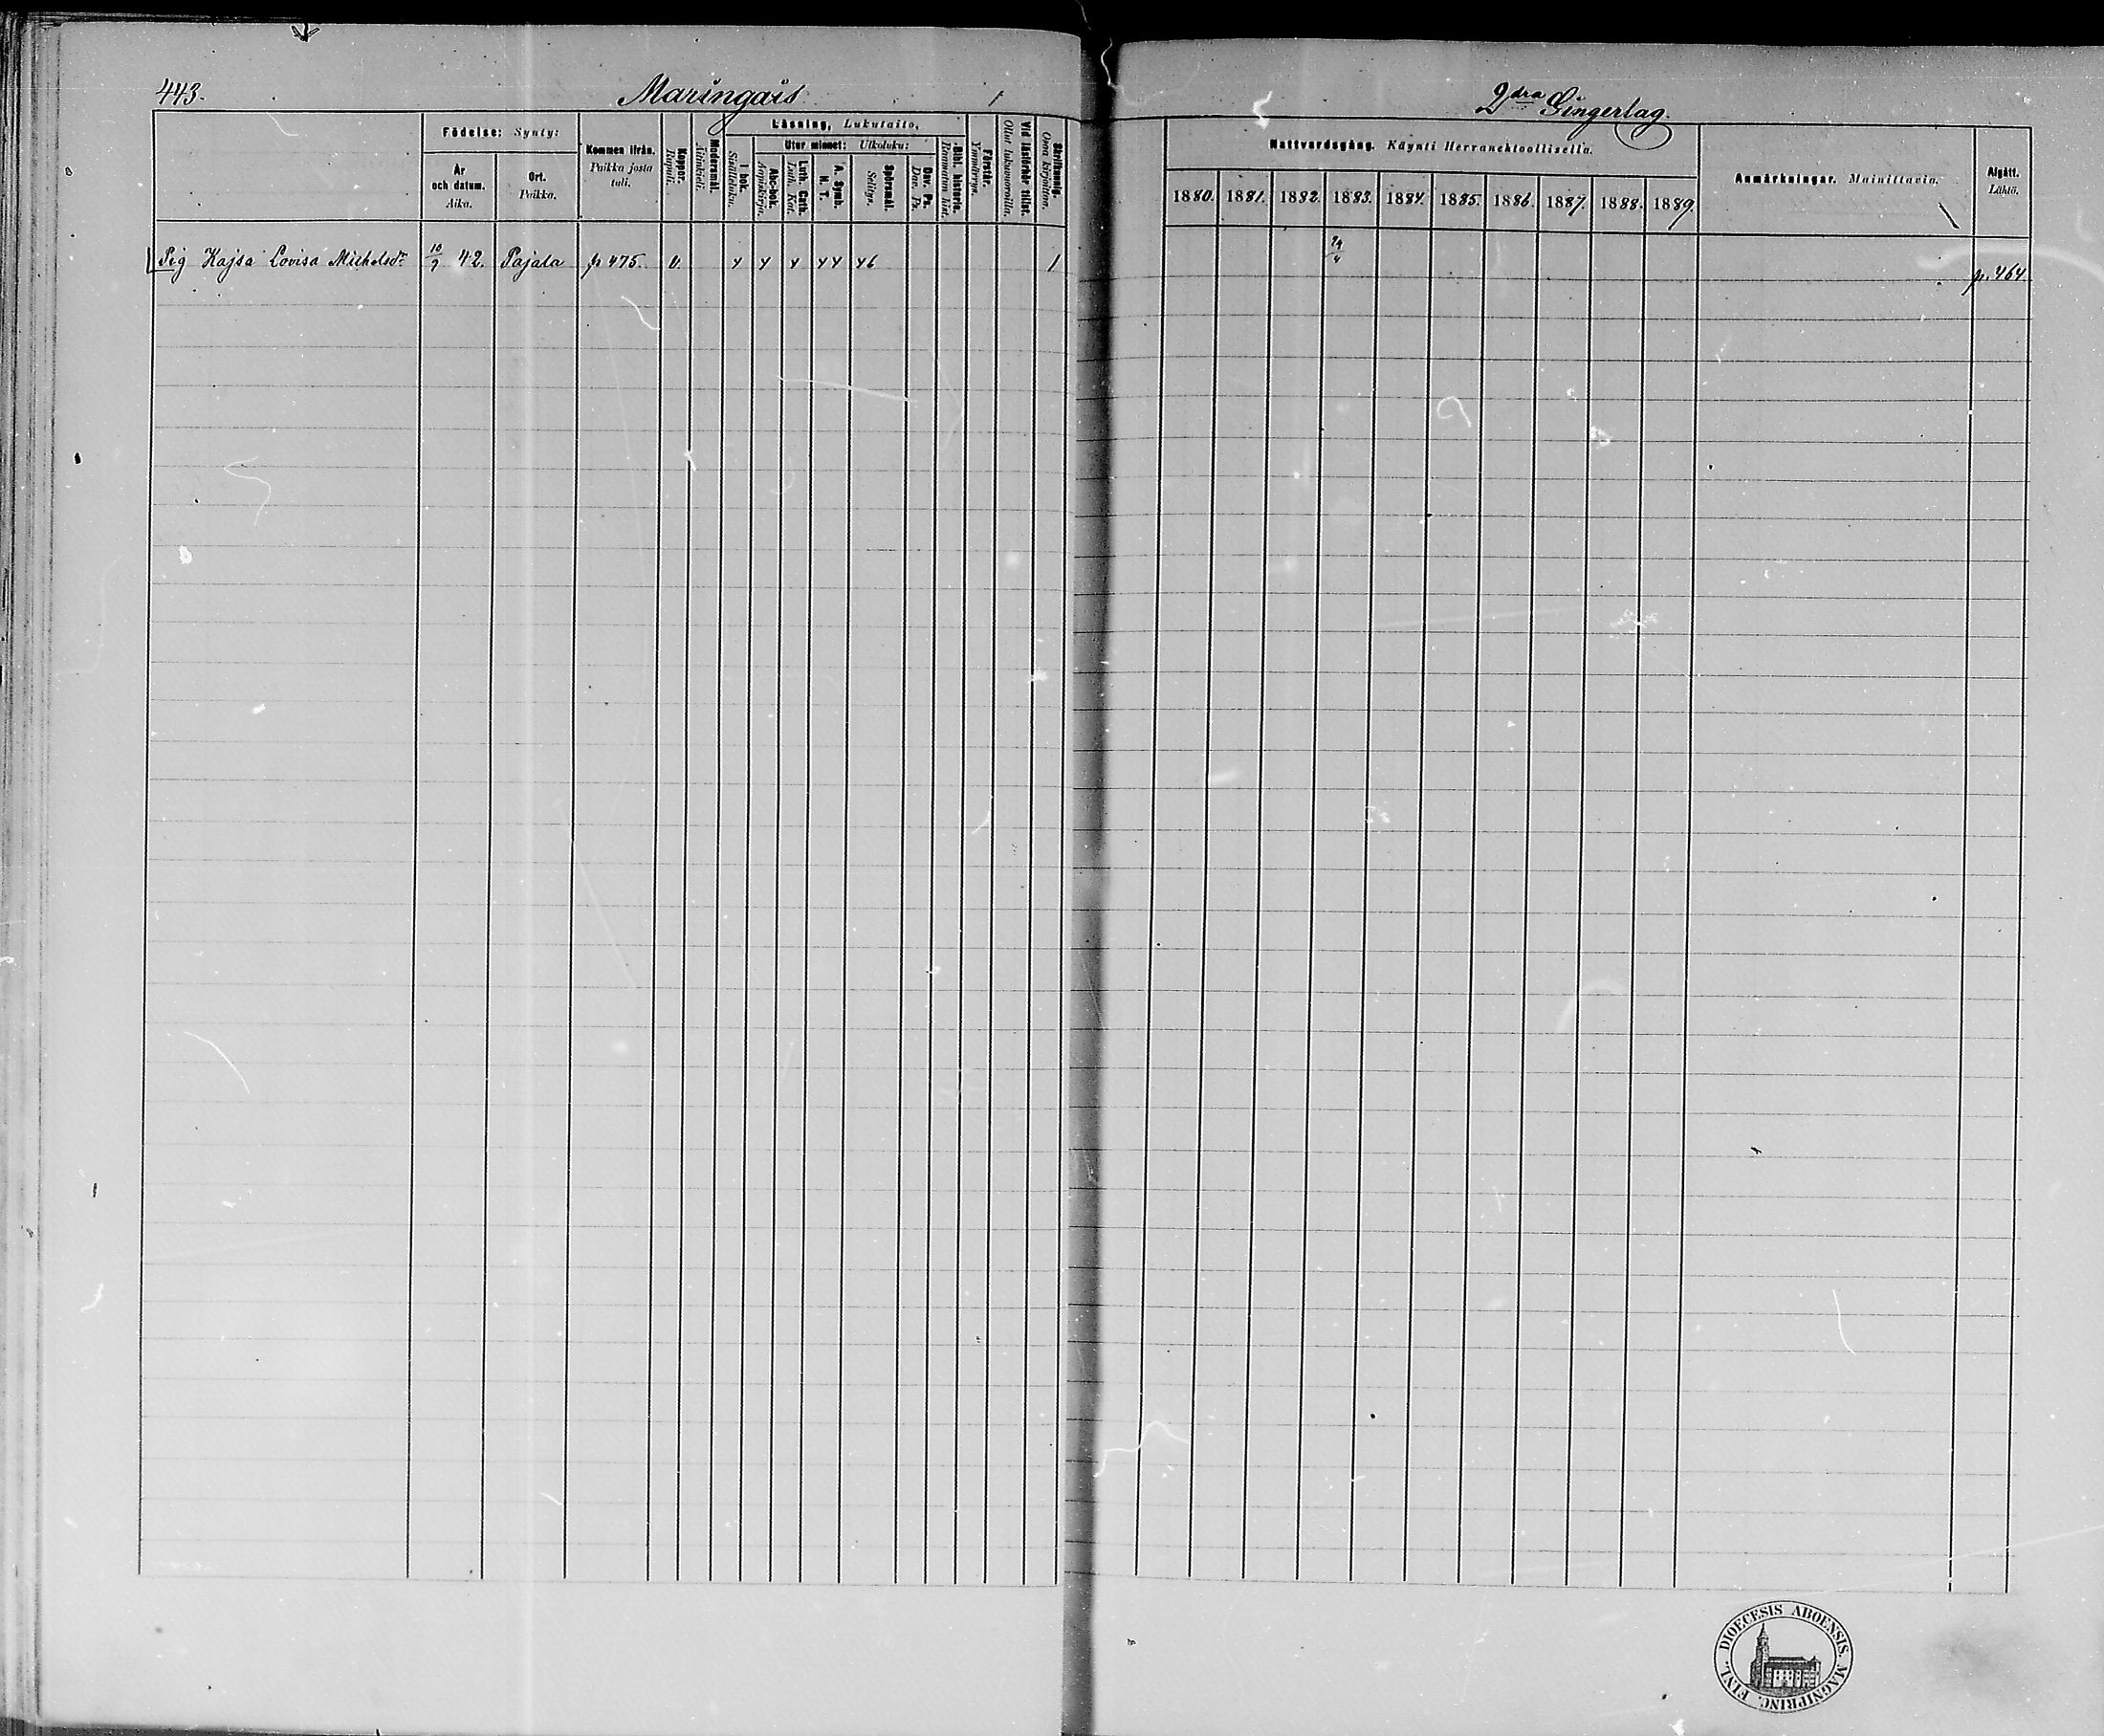 443. Maringais 2dra Gingerlag.
Födelse: Synty:
År och datum. Aika.
Ort. Paikka.
Kommen ifrån. Paikka josta tuli.
Koppor. Rupuli.
Modersmål. Äitinkieli.
Läsning, Lukutaito,
I bok. Sisältluku.
Utur minnet: Ulkoluku:
Abc-bok. Aapiskirja.
Luth. Cath. Luth. Kat.
A. Symb. H. T.
Spörsmål. Selitys.
Dav. Ps. Dav. Ps.
Bibl. historia. Raamatun hist.
Förstår. Ymmärrys.
Vid läsförhör tillst. Ollut lukuvuoroilla.
Skrifkunnig. Osaa kirjoittaa.
Nattvardsgång. Käynti Herranehtoollisella.
1880. 1881. 1882. 1883. 1884. 1885. 1886. 1887. 1888. 1889.
Anmärkningar. Mainittavia.
Afgått. Lähtö.
Pig Kajsa Lovisa Michelsdr 10/7 42. Pajala p 475. v. x x x x x x 6 1 p. 464
DIOECESIS ABOENSIS MAGNIPRINC. FINL.